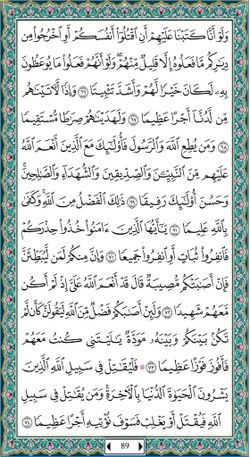 وَلَوْ أَنَّا كَتَبْنَا عَلَيْهِمْ أَنِ اقْتُلُوا أَنفُسَكُمْ أَوِ اخْرُجُوا مِن
دِيَارِكُم مَّا فَعَلُوهُ إِلَّا قَلِيلٌ مِّنْهُمْ وَلَوْ أَنَّهُمْ فَعَلُوا مَا يُوعَظُونَ
بِهِ لَكَانَ خَيْرًا لَّهُمْ وَأَشَدَّ تَثْبِيتًا ٦٦ وَإِذًا لَّآتَيْنَاهُم
مِّن لَّدُنَّا أَجْرًا عَظِيمًا ٦٧ وَلَهَدَيْنَاهُمْ صِرَاطًا مُّسْتَقِيمًا
٦٨ وَمَن يُطِعِ اللَّهَ وَالرَّسُولَ فَأُولَٰئِكَ مَعَ الَّذِينَ أَنْعَمَ اللَّهُ
عَلَيْهِم مِّنَ النَّبِيِّينَ وَالصِّدِّيقِينَ وَالشُّهَدَاءِ وَالصَّالِحِينَ
وَحَسُنَ أُولَٰئِكَ رَفِيقًا ٦٩ ذَٰلِكَ الْفَضْلُ مِنَ اللَّهِ وَكَفَىٰ
بِاللَّهِ عَلِيمًا ٧٠ يَا أَيُّهَا الَّذِينَ آمَنُوا خُذُوا حِذْرَكُمْ
فَانفِرُوا ثُبَاتٍ أَوِ انفِرُوا جَمِيعًا ٧١ وَإِنَّ مِنكُمْ لَمَن لَّيُبَطِّئَنَّ
فَإِنْ أَصَابَتْكُم مُّصِيبَةٌ قَالَ قَدْ أَنْعَمَ اللَّهُ عَلَيَّ إِذْ لَمْ أَكُن
مَّعَهُمْ شَهِيدًا ٧٢ وَلَئِنْ أَصَابَكُمْ فَضْلٌ مِّنَ اللَّهِ لَيَقُولَنَّ كَأَن لَّمْ
تَكُن بَيْنَكُمْ وَبَيْنَهُ مَوَدَّةٌ يَا لَيْتَنِي كُنتُ مَعَهُمْ
فَأَفُوزَ فَوْزًا عَظِيمًا ٧٣ فَلْيُقَاتِلْ فِي سَبِيلِ اللَّهِ الَّذِينَ
يَشْرُونَ الْحَيَاةَ الدُّنْيَا بِالْآخِرَةِ وَمَن يُقَاتِلْ فِي سَبِيلِ
اللَّهِ فَيُقْتَلْ أَوْ يَغْلِبْ فَسَوْفَ نُؤْتِيهِ أَجْرًا عَظِيمًا ٧٤
89